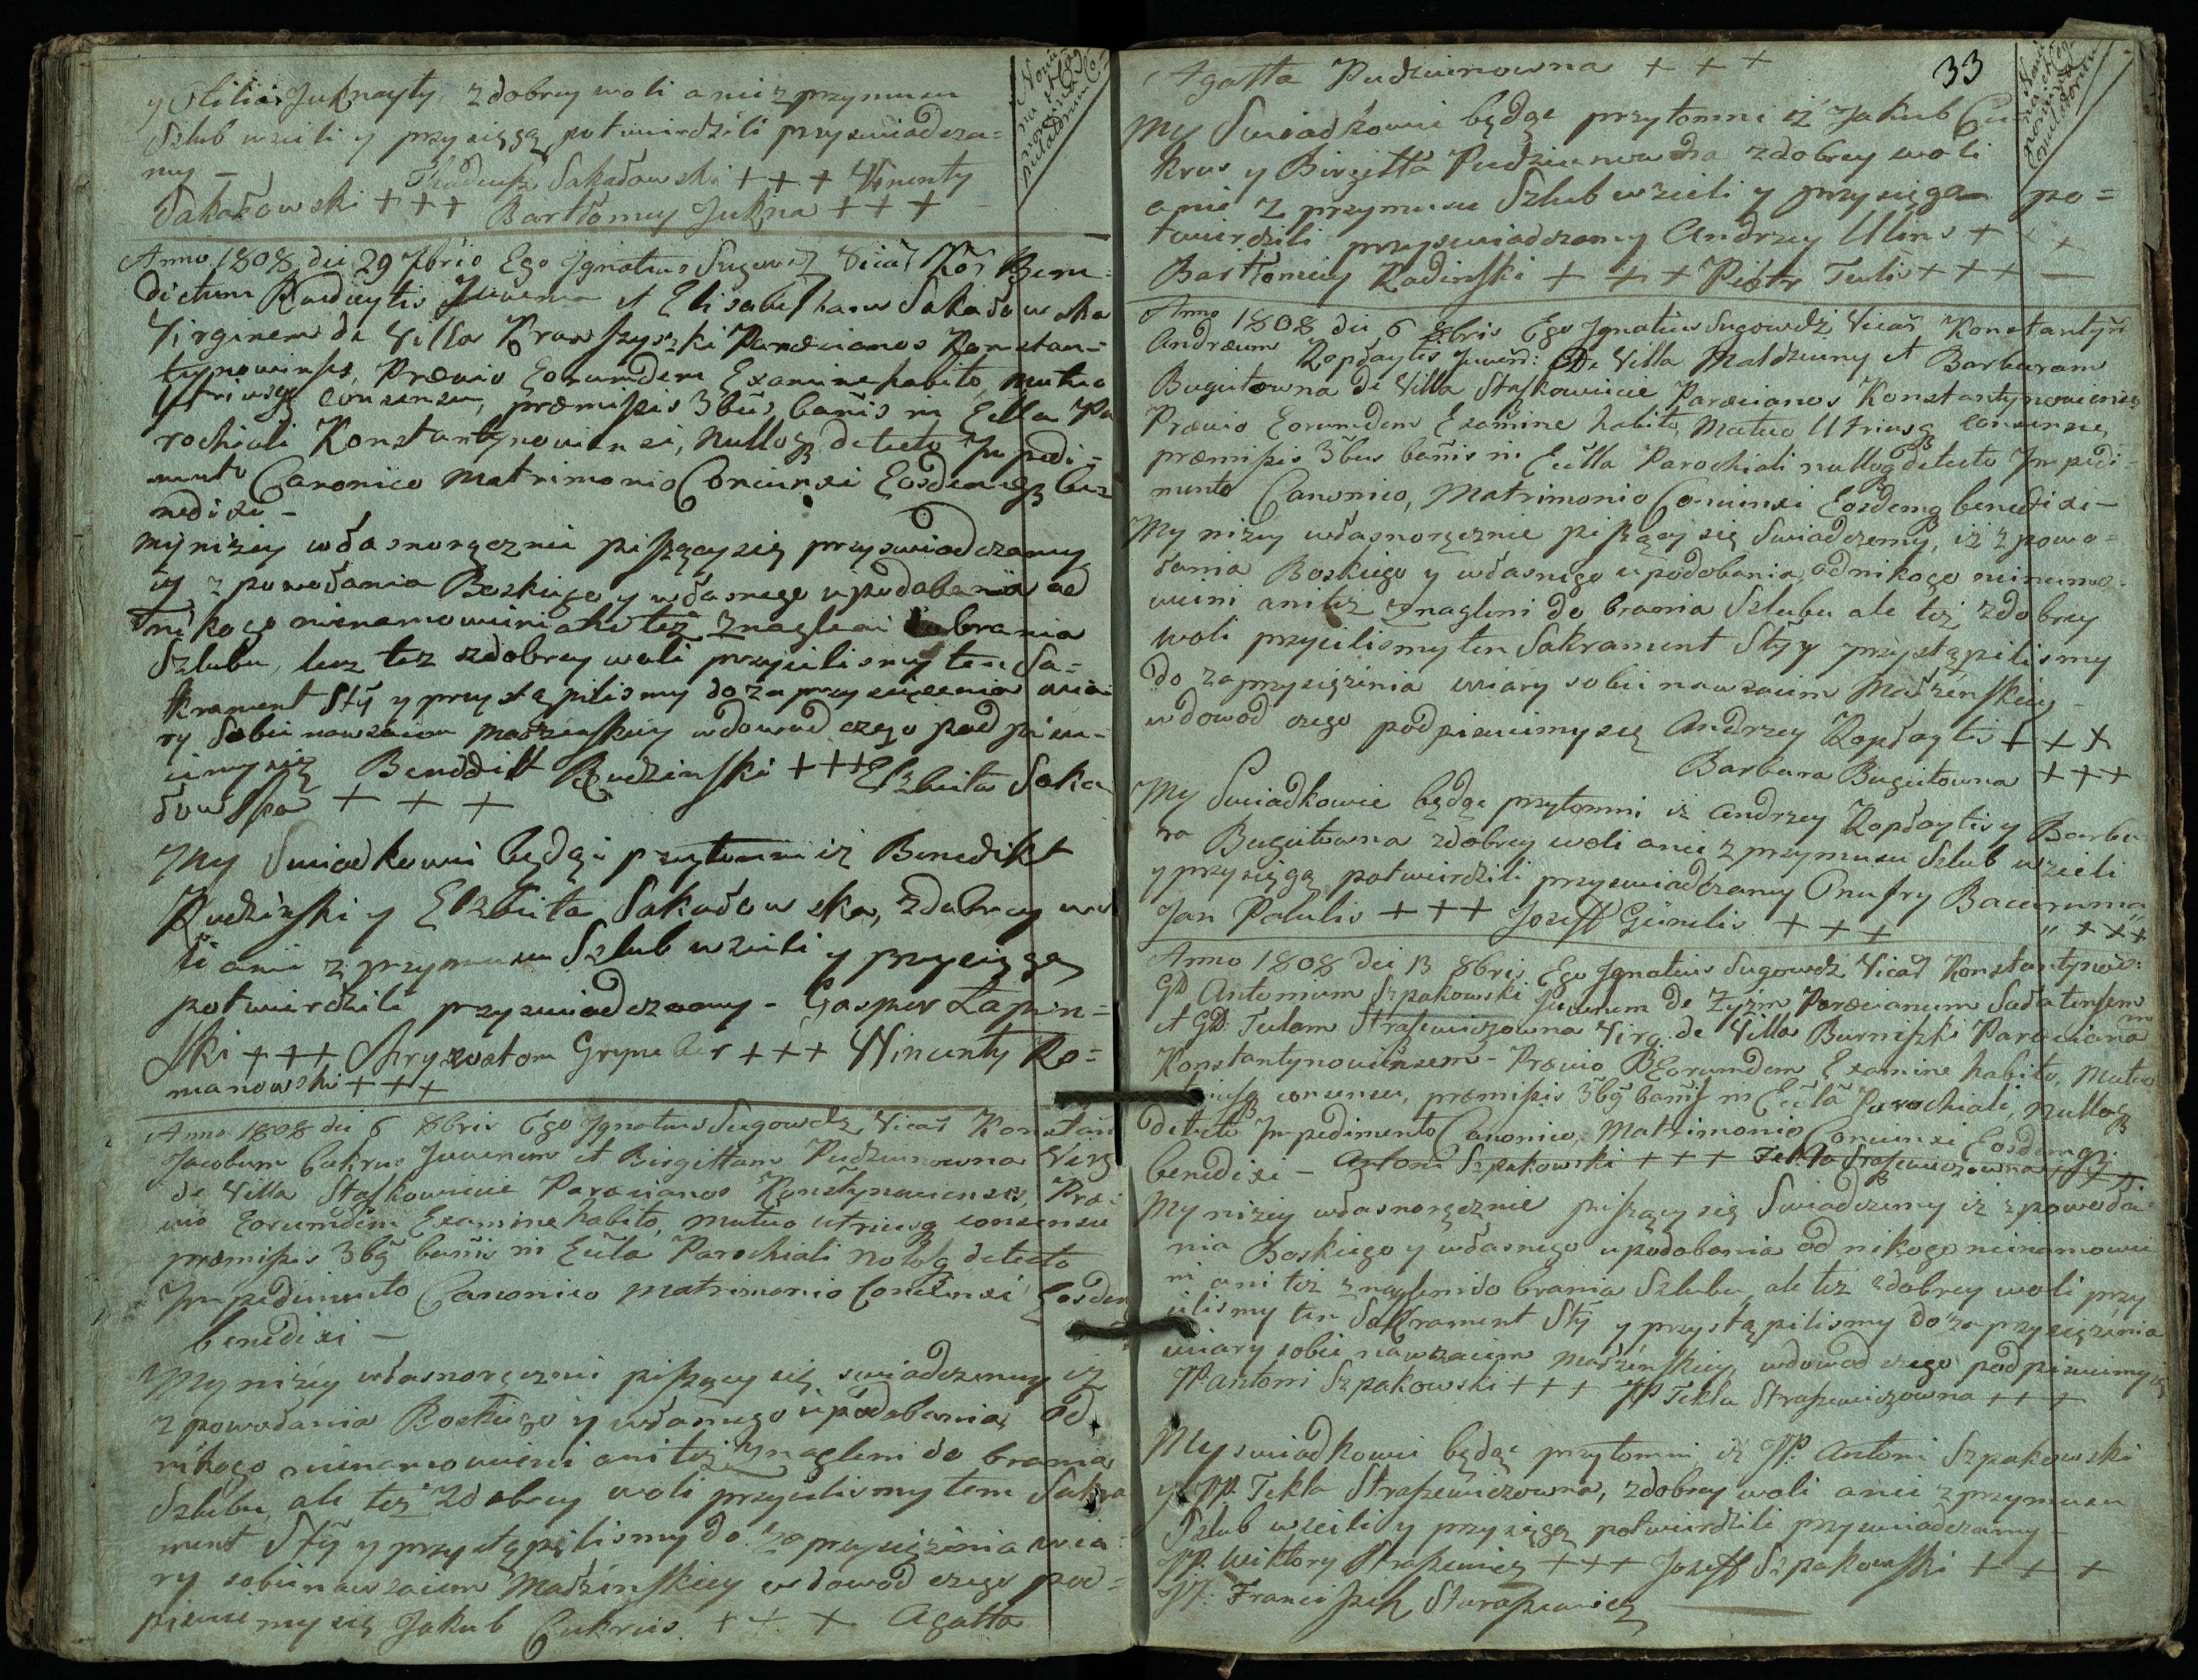 y Otilia Juknayty, z dobrey woli a nie z przymusu
Szlub wzieli y przysięgą potwierdzili przyswiadcza=
my – Thadeusz Sakałowski + + + Wincenty
Sakałowski + + + Bartłomiey Jukna + + +
Anno 1808 die 29 7bris Ego Ignatius Sugowdź Vicař Kos Bene=
dictum Rudzeytis Juvenem et Elisabetham Sakałowska
Virginem de Villa Parœcianos Konstan=
tynovienses, Prævio Eorumdem Examine habito, mutuo
Utriusq consensu, præmissis 3bus bañis in Eccla Pa
rochiali Konstantynoviensi, nulloq detecto Impedi=
mento Canonico Matrimonio Conjunxi Eosdemq be
nedixi –
My niżey własnoręcznie piszący się przyswiadczamy
iż z powołania Boskiego y własnego upodobania od
nikogo nienamowieni ani też znagleni do brania
Szlubu, lecz też z dobrey woli przyielismy ten Sa=
krament Stỹ y przystąpilismy do zaprzysiężenia wia
ry Sobie nawzaiem małżenskiey w dowod czego podpisu=
iemy się Benedikt Rudzinski + + + Elzbieta Saka
łowska + + +
My Swiadkowie będąc przytomni iż Benedikt
Rudzinski y Elzbieta Sakałowska, z dobrey wo
li a nie z przymusu Szlub wzieli y przysięgą
potwierdzili przyswiadczamy – Gasper Łapin=
ski + + + Chryzostom + + + Wincenty Ro=
manowski + + +
Anno 1808 die 6 8bris Ego Ignatius Sugowdź Vicař Konstan
Jacobum Cukrus Juvenem et Birgittam Pudziunowna Virg
de Villa Staszkowicie Parœcianos Konstynovienses, Præ=
vio Eorumdem Examine habito, mutuo utriusq consensu
præmissis 3bq bañis in Eccla Parochiali nolloq detecto
Impedimento Canonico Matrimonio Conjunxi Eosdem
benedixi –
My niżey własnoręcznie piszący się swiadczemy iż
z powołania Boskiego y własnego upodobania, od
nikogo nienamowieni ani też znagleni do brania
Szlubu, ale też z dobrey woli przyielismy ten Sakra
ment Stỹ y przystąpilismy do zaprzysiężenia wia=
ry sobie nawzaiem Małżenskiey w dowod czego pod=
pisuiemy się Jakub Cukrus + + + Agatta
33
Agatta Pudziunowna + + +
My Swiadkowie będąc przytomni iż Jakub Cu
krus y Birgitta Pudziunowna z dobrey woli
a nie z przymusu Szlub wzieli y przysięgą po=
twierdzili przyswiadczamy Andrzey Ulins + + +
Bartłomiey Radinski + + + Piotr Tulis + + + –
Anno 1808 die 6 8bris Ego Ignatius Sugowdź Vicař Konstantyñ
Andræum Kopłaytis Juveñ: De Villa Maldziuny et Barbaram
Bugutowna de Villa Staszkowicie Parœcianos Konstantynovienses
Prævio Eorumdem Examine habito, Mutuo Utriusq consensu,
præmissis 3bus bañis in Eccla Parochiali nulloq detecto Impedi=
mento Canonico, Matrimonio Conjunxi Eosdemq benedixi –
My niżey własnoręcznie piszący się Swiadczemy, iż z powo=
łania Boskiego y własnego upodobania, od nikogo nienamo=
wieni ani też znagleni do brania Szlubu ale też z dobrey
woli przyielismy ten Sakrament Stỹ y przystąpilismy
do zaprzysiężenia wiary sobie nawzaiem Małżenskiey –
w dowod czego podpisuiemy się Andrzey Kopłaytis + + +
Barbara Bugutowna + + +
My Swiadkowie będąc przytomni iż Andrzey Kopłaytis y Barba
ra Bugutowna z dobrey woli a nie z przymusu Szlub wzieli
y przysięgą potwierdzili przyswiadczamy Onufry
Jan Palulis + + + Jozeff Gienelis + + + " + + +
Anno 1808 die 13 8bris Ego Ignatius Sugowdź Vicař Konstantynov:
GD Antonium Szpakowski Juvenem de Żyżm Parœcianum Sałatensem
et GD: Teclam Straszewiczowna Virg: de Villa Burniszki Parœcianam
Konstantynoviensem – Prævio Eorumdem Examine habito, Mutuo
utriusq consensu, præmissis 3bq bañis in Eccla Parochiali, nulloq
detecto Impedimento Canonico, Matrimonio Conjunxi Eosdemq
benedixi – Antoni Szpakowski + + + Tekla Straszewiczowna + + +
My niżey własnoręcznie piszący się Swiadczemy iż z powoła
nia Boskiego y własnego upodobania od nikogo nienamowie
ni ani też znagleni do brania Szlubu, ale też z dobrey woli przy
ielismy ten Sakrament Stỹ y przystąpilismy do zaprzysiężenia
wiary sobie nawzaiem małżenskiey, w dowod czego podpisuiemy się
JP Antoni Szpakowski + + + JP Tekla Straszewiczowna + + +
My swiadkowie będąc przytomni iż JP. Antoni Szpakowski
y JP. Tekla Straszewiczowna, z dobrey woli a nie z przymusu
Szlub wzieli y przysięgą potwierdzili przyswiadczamy –
JP. Wiktory Straszewicz + + + Jozeff Szpakowski + + +
JP. Franciszek Straszewicz